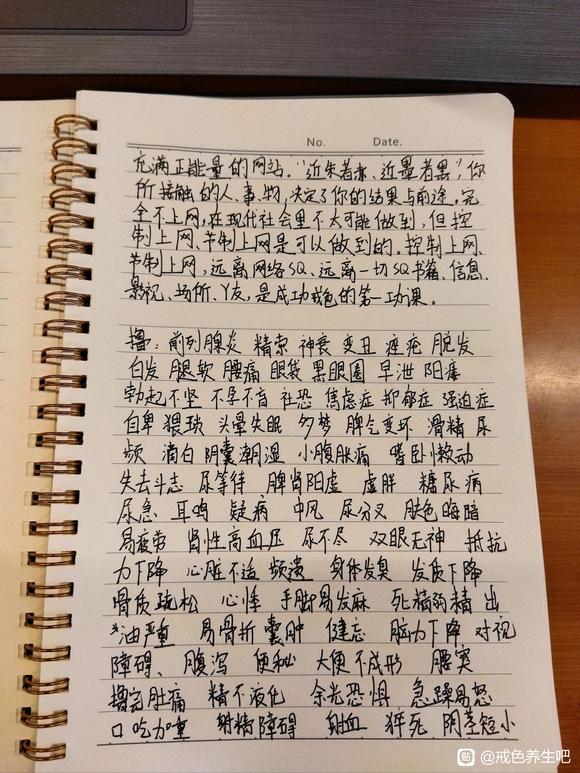 No. Date.
充满正能量的网站。"近朱者赤、近墨者黑",你
所接触的人、事、物,决定了你的结果与前途。完
全不上网,在现代社会里不太可能做到,但控
制上网、节制上网是可以做到的。控制上网、
节制上网,远离网络SQ、远离一切SQ书籍、信息、
影视、场所、Y友,是成功戒色的第一功课。
撸:前列腺炎 精索 神衰 变丑 痤疮 脱发
白发 腿软 腰痛 眼袋 黑眼圈 早泄 阳痿
勃起不坚 不孕不育 社恐 焦虑症 抑郁症 强迫症
自卑 猥琐 头晕失眠 多梦 脾气变坏 滑精 尿
频 滴白 阴囊潮湿 小腹胀痛 嗜卧懒动
失去斗志 尿等待 脾肾阳虚 虚胖 糖尿病
尿急 耳鸣 疑病 中风 尿分叉 肤色晦暗
易疲劳 肾性高血压 尿不尽 双眼无神 抵抗
力下降 心脏不适 频遗 身体发臭 发质下降
骨质疏松 心悸 手脚易发麻 死精弱精 出
油严重 易骨折 囊肿 健忘 脑力下降 对视
障碍、腹泻 便秘 大便不成形 腰突
撸完肚痛 精不液化 余光恐惧 急躁易怒
口吃加重 射精障碍 射血 猝死 阴茎短小
贴 @戒色养生吧